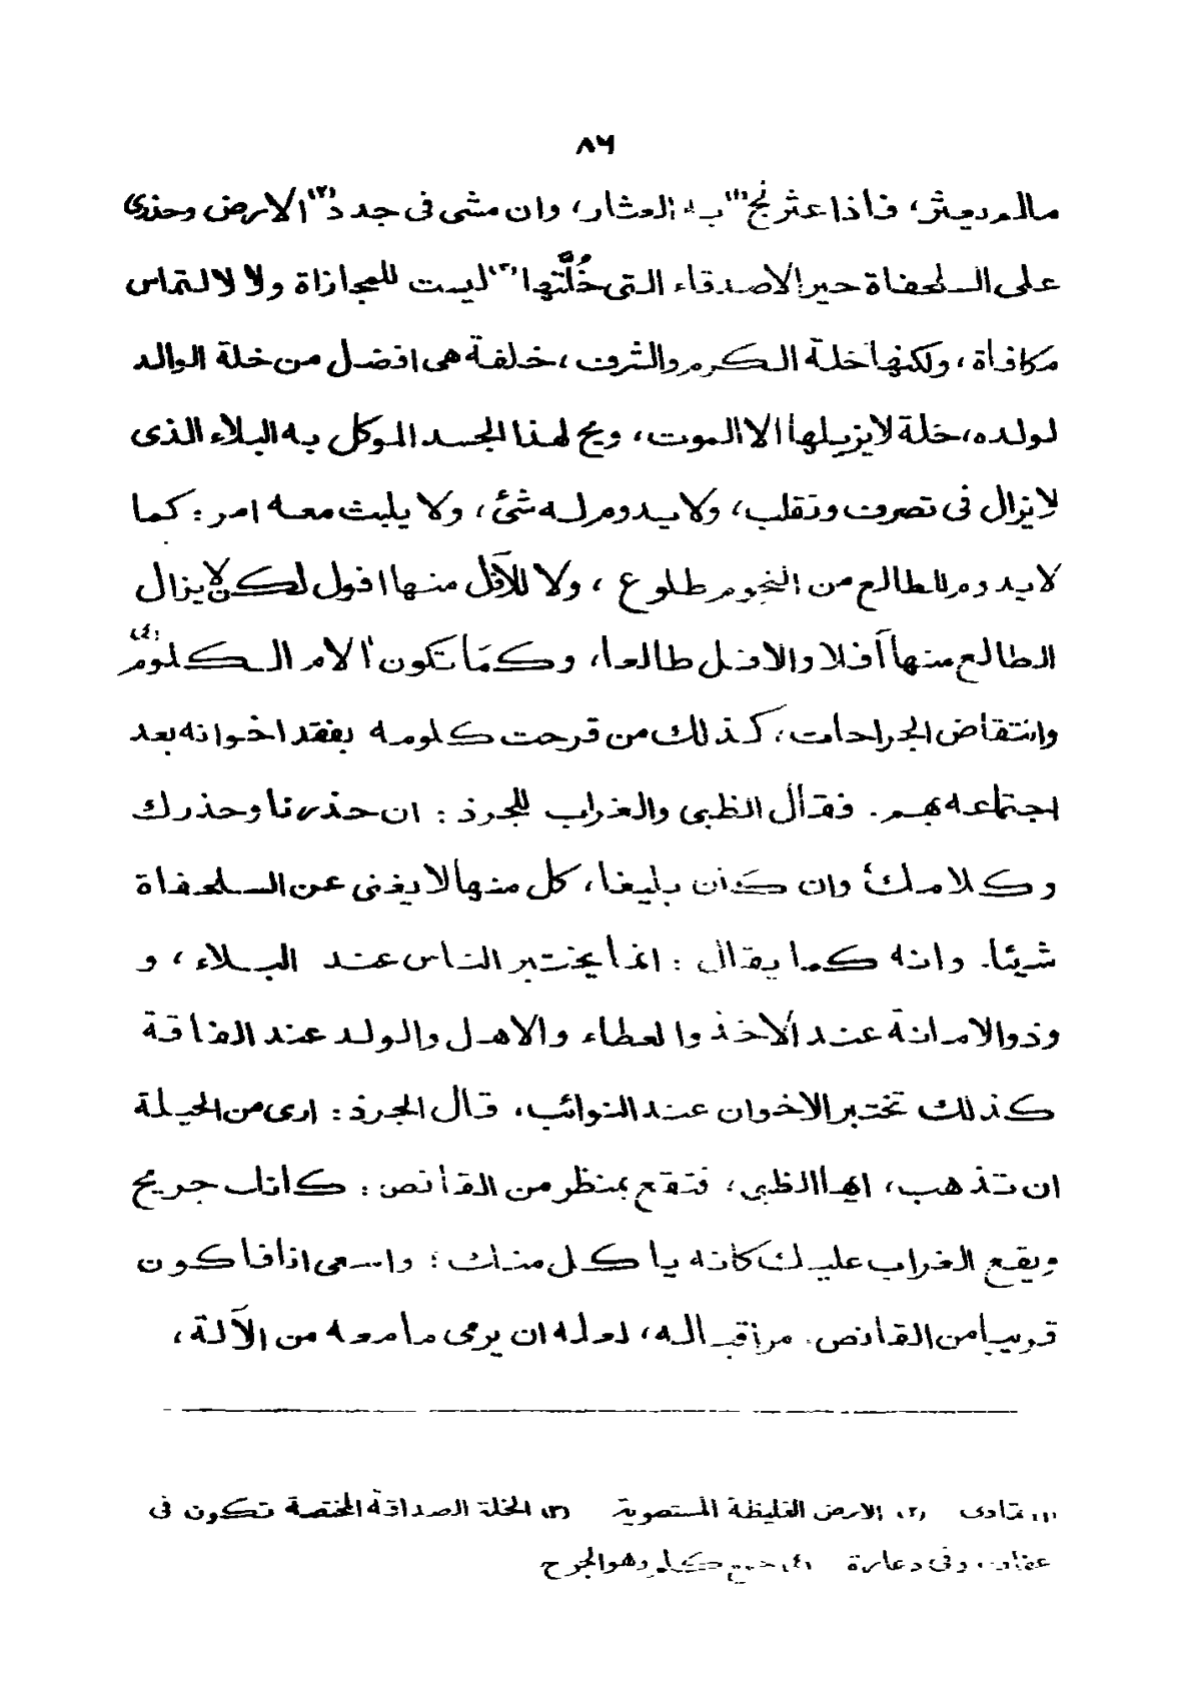 ٨٦
مالم يعثر، فاذا عثر لج(١) به العثار، وان مشى فى جدد(٢) الارض وحذرى
على السلحفاة خير الاصدقاء التى خُلَّتها(٣) ليست للمجازاة ولا لالتماس
مكافأة، ولكنها خلة الكرم والشرف، خلفة هى افضل من خلة الوالد
لولده، خلة لايزيلها الا الموت، ويح لهذا الجسد الموكل به البلاء الذى
لايزال فى تصرف وتقلب، ولايدوم له شئ، ولا يلبث معه امر: كما
لايدوم للطالع من النجوم طلوع، ولا للآفل منها افول لكن لايزال
الطالع منها آفلا والافل طالعا، وكما تكون آلام الكلوم(٤)
وانتقاض الجراحات، كذلك من قرحت كلومه بفقد اخوانه بعد
اجتماعه بهم. فقال الظبى والغراب للجرذ: ان حذرنا وحذرك
وكلامك وان كان بليغا، كل منها لايغنى عن السلحفاة
شيئا. وانه كما يقال: انما يختبر الناس عند البلاء، و
وذوالامانة عند الأخذ والعطاء والاهل والولد عند الفاقة
كذلك تختبر الاخوان عند النوائب، قال الجرذ: ارى من الحيلة
ان تذهب، ايها الظبى، فتقع بمنظر من القانص: كانك جريح
ويقع الغراب عليك كانه ياكل منك: واسعى انا فاكون
قريبا من القانص. مراقبا له، لعله ان يرمى مامعه من الآلة،
(١) تمادى (٢) الارض الغليظة المستصوية (٣) الخلة الصداقة المختصة تكون فى
عفاف، وفى دعارة (٤) جمع كلم وهو الجرح